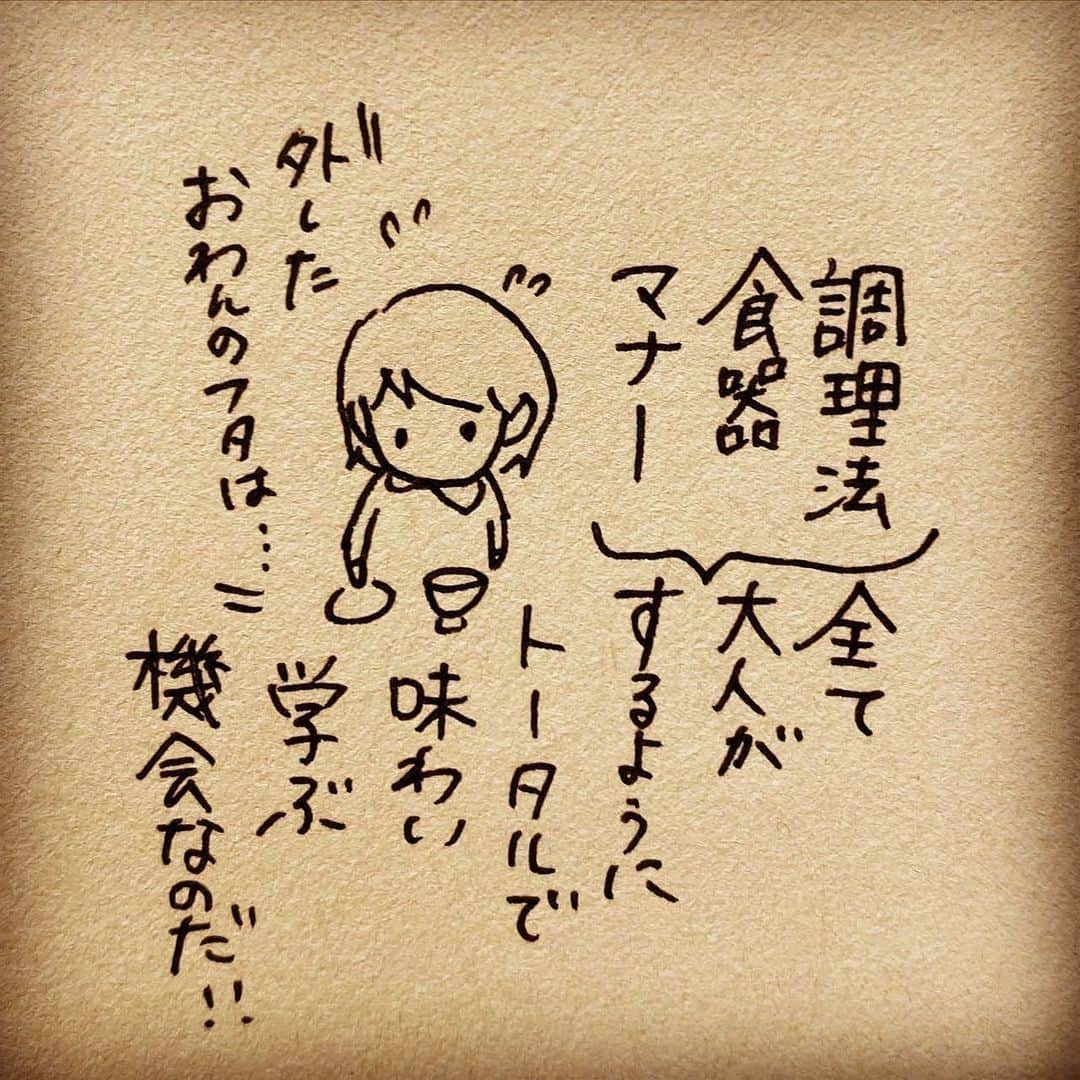 調理法
食器
マナー
全て
大人が
するように
トータルで
味わい
学ぶ
機会なのだ!!
外した
おわんのフタは…